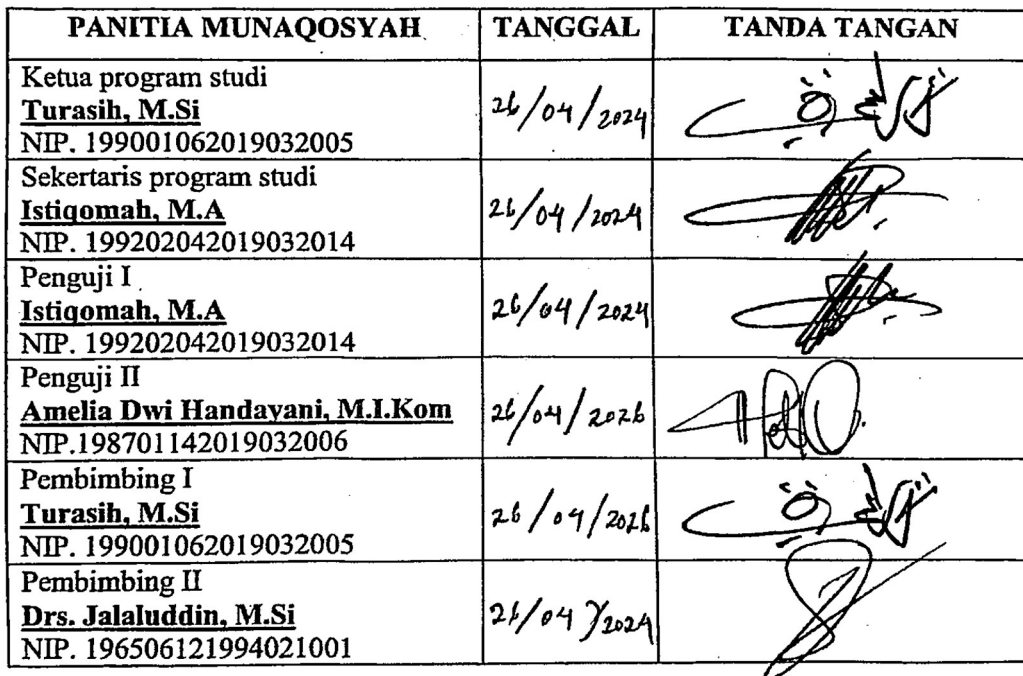 PANITIA MUNAQOSYAH TANGGAL TANDA TANGAN
Ketua program studi
Turasih, M.Si
NIP. 199001062019032005
26/04/2024
Sekertaris program studi
Istiqomah, M.A
NIP. 199202042019032014
26/04/2024
Penguji I
Istiqomah, M.A
NIP. 199202042019032014
26/04/2024
Penguji II
Amelia Dwi Handayani, M.I.Kom
NIP.198701142019032006
26/04/2026
Pembimbing I
Turasih, M.Si
NIP. 199001062019032005
26/04/2026
Pembimbing II
Drs. Jalaluddin, M.Si
NIP. 196506121994021001
26/04/2024